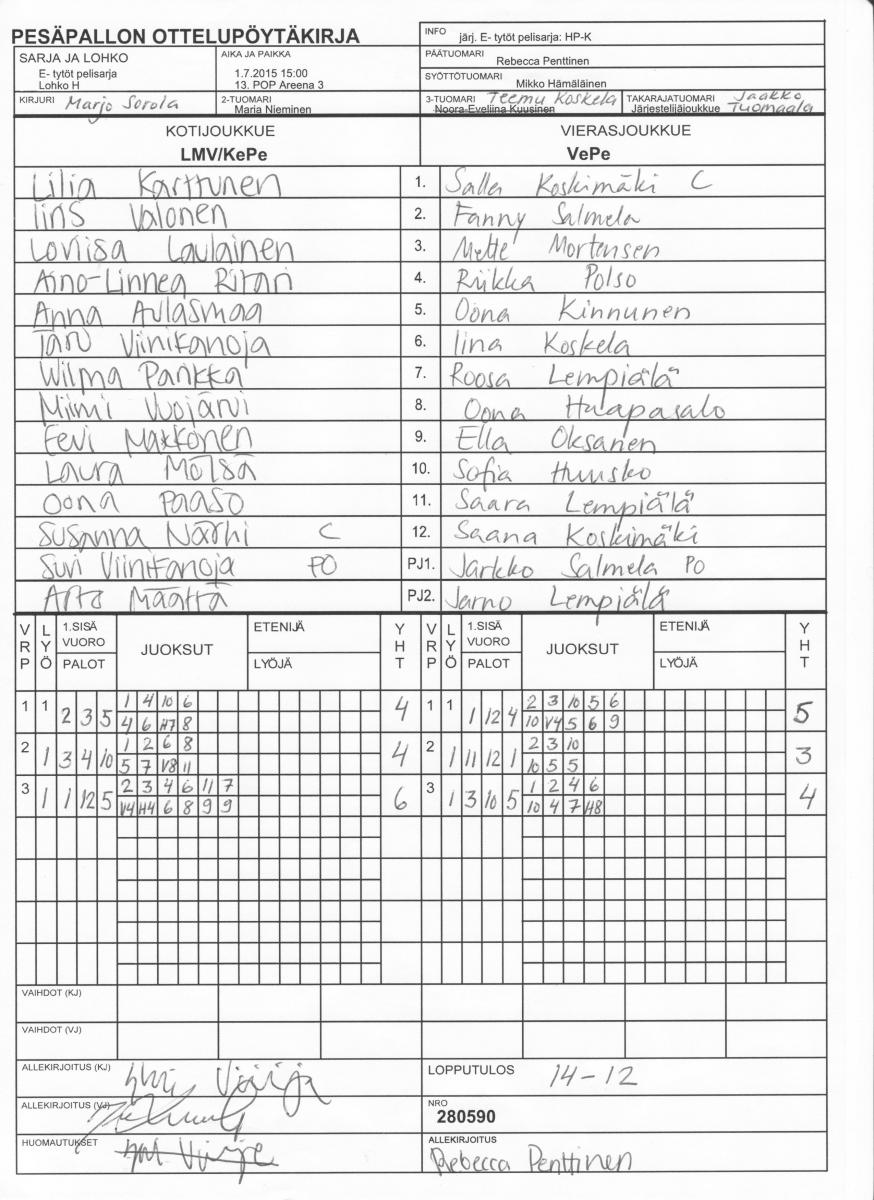 PESÄPALLON OTTELUPÖYTÄKIRJA
INFO järj. E- tytöt pelisarja: HP-K
SARJA JA LOHKO
E- tytöt pelisarja
Lohko H
AIKA JA PAIKKA
1.7.2015 15:00
13. POP Areena 3
PÄÄTUOMARI Rebecca Penttinen
SYÖTTÖTUOMARI Mikko Hämäläinen
KIRJURI Marjo Sorola
2-TUOMARI
Maria Nieminen
3-TUOMARI Teemu Koskela
Noora-Eveliina Kuusinen
TAKARAJATUOMARI Jaakko
Järjestelijäjoukkue Tuomaala
KOTIJOUKKUE VIERASJOUKKUE
LMV/KePe VePe
Lilia Karttunen 1. Salla Koskimäki C
Iiris Valonen 2. Fanny Salmela
Loviisa Laulainen 3. Mette Mortensen
Aino-Linnea Ritari 4. Riikka Polso
Anna Aulasmaa 5. Oona Kinnunen
Taru Viinikanoja 6. Iina Koskela
Wilma Pankka 7. Roosa Lempiälä
Miimi Vuojärvi 8. Oona Haapasalo
Eevi Makkonen 9. Ella Oksanen
Laura Mölsä 10. Sofia Huusko
Oona Paaso 11. Saara Lempiälä
Susanna Närhi C 12. Saana Koskimäki
Suvi Viinikanoja PO PJ1. Jarkko Salmela PO
Arto Määttä PJ2. Jarno Lempiälä
VRP LYÖ 1.SISÄ VUORO PALOT JUOKSUT ETENIJÄ LYÖJÄ YHT VRP LYÖ 1.SISÄ VUORO PALOT JUOKSUT ETENIJÄ LYÖJÄ YHT
1 1 2 3 5 1 4 10 6 4 1 1 1 12 4 2 3 10 5 6 5
4 6 H7 8 10 V4 5 6 9
2 1 3 4 10 1 2 6 8 4 2 1 11 12 1 2 3 10 3
5 7 V8 11 10 5 5
3 1 1 12 5 2 3 4 6 11 7 6 3 1 3 10 5 1 2 4 6 4
V4 H4 6 8 9 9 10 4 7 H8
VAIHDOT (KJ)
VAIHDOT (VJ)
ALLEKIRJOITUS (KJ)
LOPPUTULOS 14-12
ALLEKIRJOITUS (VJ)
NRO
280590
HUOMAUTUKSET
ALLEKIRJOITUS
Rebecca Penttinen